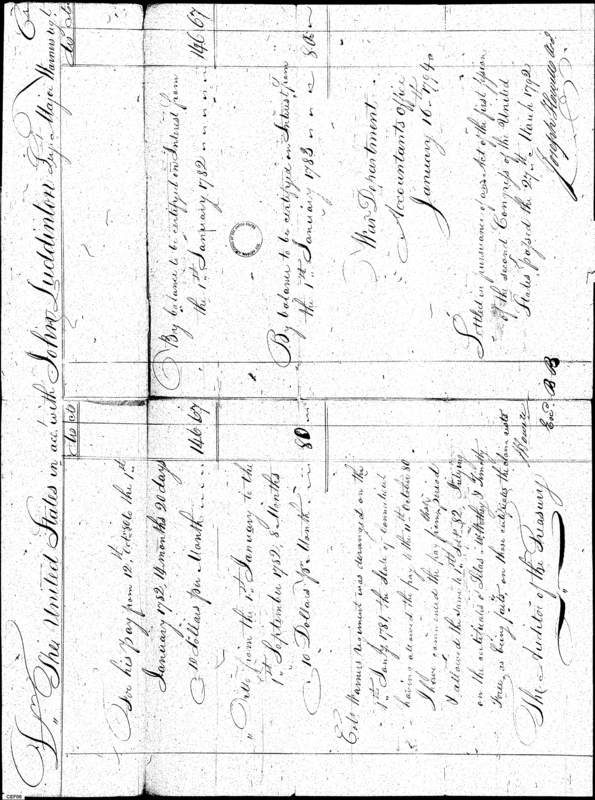 Dr. The United States in acct. with John Luddinton Lt. by Major Warner Cr.
Dls cts
For his Pay from 12th Octr. 80 to the 1st
January 1782, 14 months 20 days
10 Dollars per Month 146 67
" Ditto from the 1st January to the
1st September 1782, 8 Months
10 Dollars Pr. Month 80
Colo. Warners regiment was deranged on the
1st Jany 1781, the State of Connecticut
having allowed the pay to the 11th October 80
I have commenced the pay from that period
& allowed the same to 1st Sept. 82. Relying
on the certificates of Silas
as being facts, on those certificates the claim rests
The Auditor of the Treasury
J Howell
Exd. B B
Dls cts
By balance to be certifyed on Interest from
the 1st January 1782 146 67
By balance to be certifyed on Interest from
the 1st January 1783 80
War Department
Accountants Office
January 16th 1794
Settled in pursuance of an Act of the first session
of the second Congress of the United
States passed the 27th March 1792
Joseph Howell
CEF06